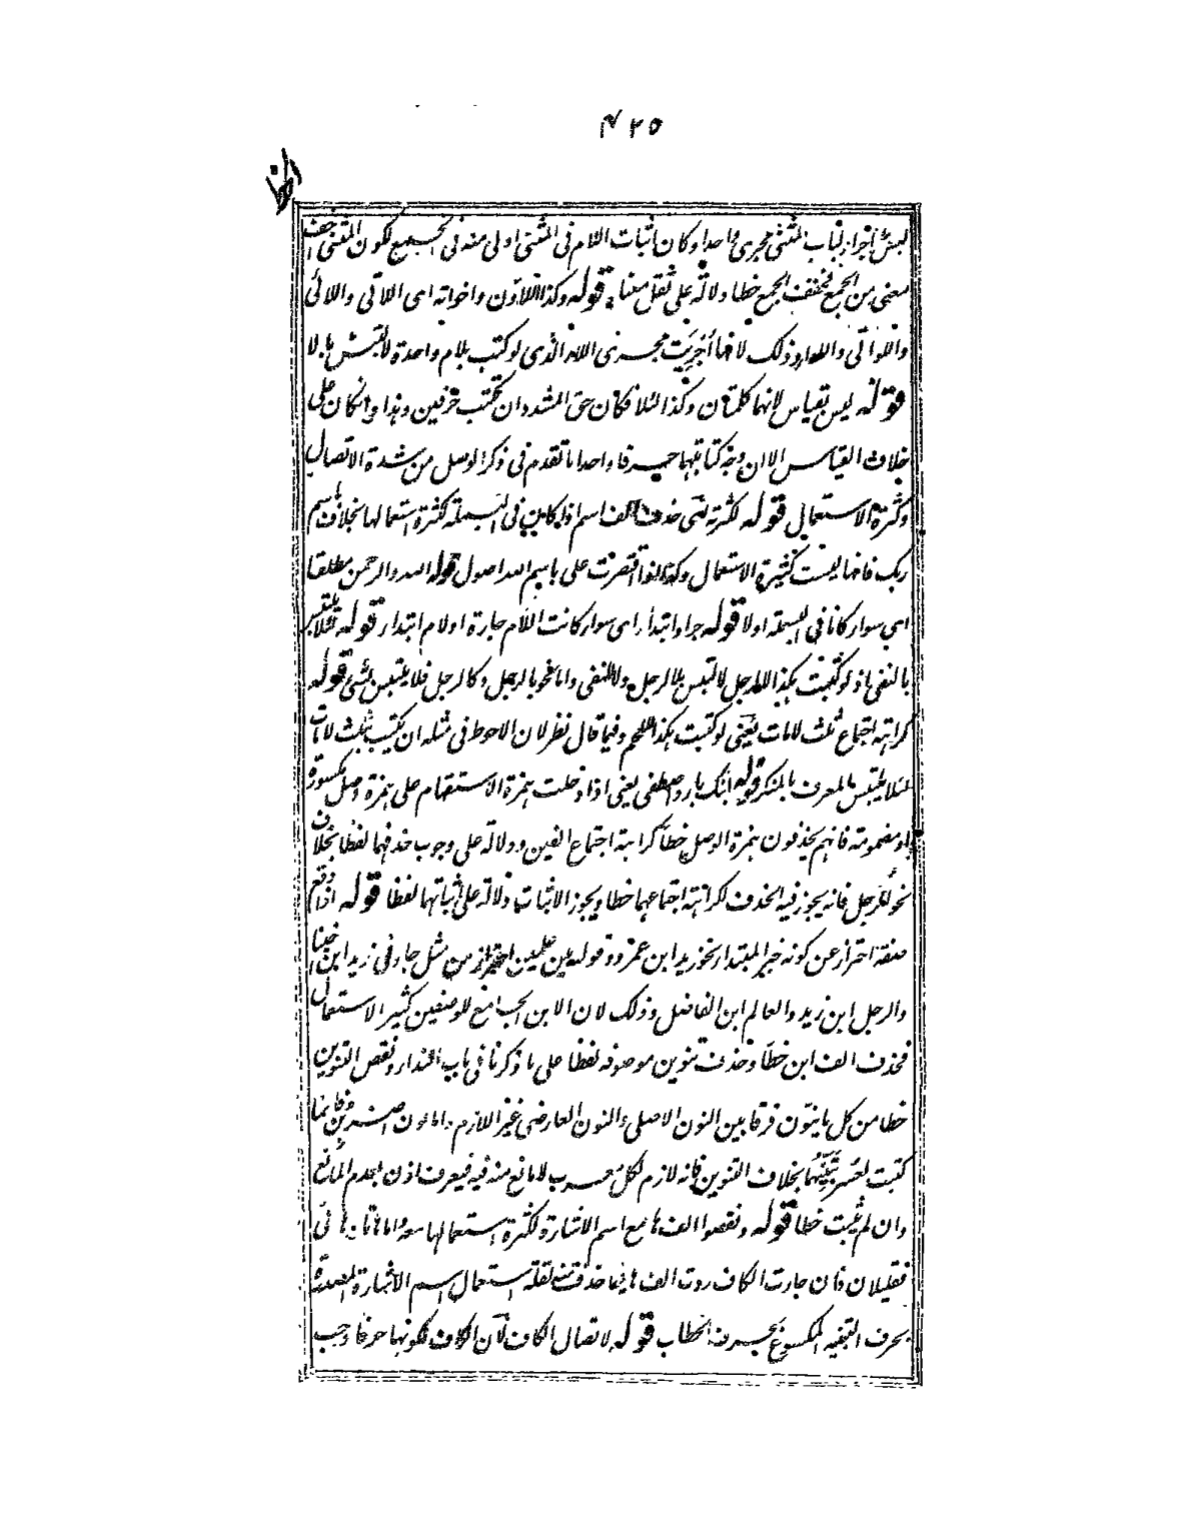 ٤٢٥
الخط
لبس اجراء لباب المثنى مجرى واحدا وكان اثبات اللام فى المثنى اولى منه فى الجمع لكون المثنى اخف
معنى من الجمع فخفف الجمع خطا دلالة على ثقل معناه قوله وكذا اللاؤن واخواته اى اللاتى واللائى
واللواتى واللواء وذلك لانها أجريت مجرى اللاء الذى لو كتب بلام واحدة لالتبس بالا
قوله ليس بقياس لانها كلمتان وكذا لئلا فكان حق المشدد ان يكتب حرفين وهذا وانكان على
خلاف القياس الا ان وجه كتابتها حرفا واحدا ما تقدم فى ذكر الوصل من شدة الاتصال
وكثرة الاستعمال قوله لكثرته يعنى حذف الف اسم اذا كان فى البسملة لكثرة استعمالها بخلاف باسم
ربك فانها ليست كثيرة الاستعمال وكذا لو اقتصرت على باسم الله اصول قوله الله والرحمن مطلقا
اى سواء كانا فى البسملة اولا قوله جرا وابتداء اى سواء كانت اللام جارة او لام ابتداء قوله لئلا يلتبس
بالنفى اذ لو كتبت هكذا لالرجل لالتبس بلا لرجل ولا للنفى واما نحو بالرجل وكالرجل فلا يلتبس بشئ قوله
كراهة اجتماع ثلث لامات يعنى لو كتبت هكذا اللحم وفيما قال نظر لان الاحوط فى مثله ان يكتب بثلث لامات
لئلا يلتبس المعرف بالمنكر قوله ابنك بار واصطفى يعنى اذا دخلت همزة الاستفهام على همزة وصل مكسورة
او مضمومة فانهم يحذفون همزة الوصل خطا كراهة اجتماع الفين ودلالة على وجوب حذفها لفظا بخلاف
نحو الرجل فانه يجوز فيه الحذف لكراهة اجتماعها خطا ويجوز الاثبات دلالة على اثباتها لفظا قوله اذا وقع
صفة احتراز عن كونه خبر المبتدا نحو زيد ابن عمرو وقوله بين علمين احتراز من مثل جاءنى زيد ابن اخينا
والرجل ابن زيد والعالم ابن الفاضل وذلك لان الابن الجامع للوصفين كثير الاستعمال
فحذف الف ابن خطا وحذف تنوين موصوفه لفظا على ما ذكرنا فى باب النداء ونقص التنوين
خطا من كل ما ينون فرقا بين النون الاصلى والنون العارضى غير اللازم واما نون اضربن فانما
كتبت لعسر تبينها بخلاف التنوين فانه لازم لكل معرب لا مانع منه فيه فيعرف اذن بعدم المانع
وان لم يثبت خطا قوله ونقصوا الف ها مع اسم الاشارة لكثرة استعمالها معه واما هاتان هاتى
فقليلان فان جاءت الكاف ردت الف ها فيما حذفت منه لقلة استعمال اسم الاشارة المصدرة
بحرف التنبيه المكسوع بحرف الخطاب قوله لاتصال الكاف لان الكاف لكونها حرفا وجب